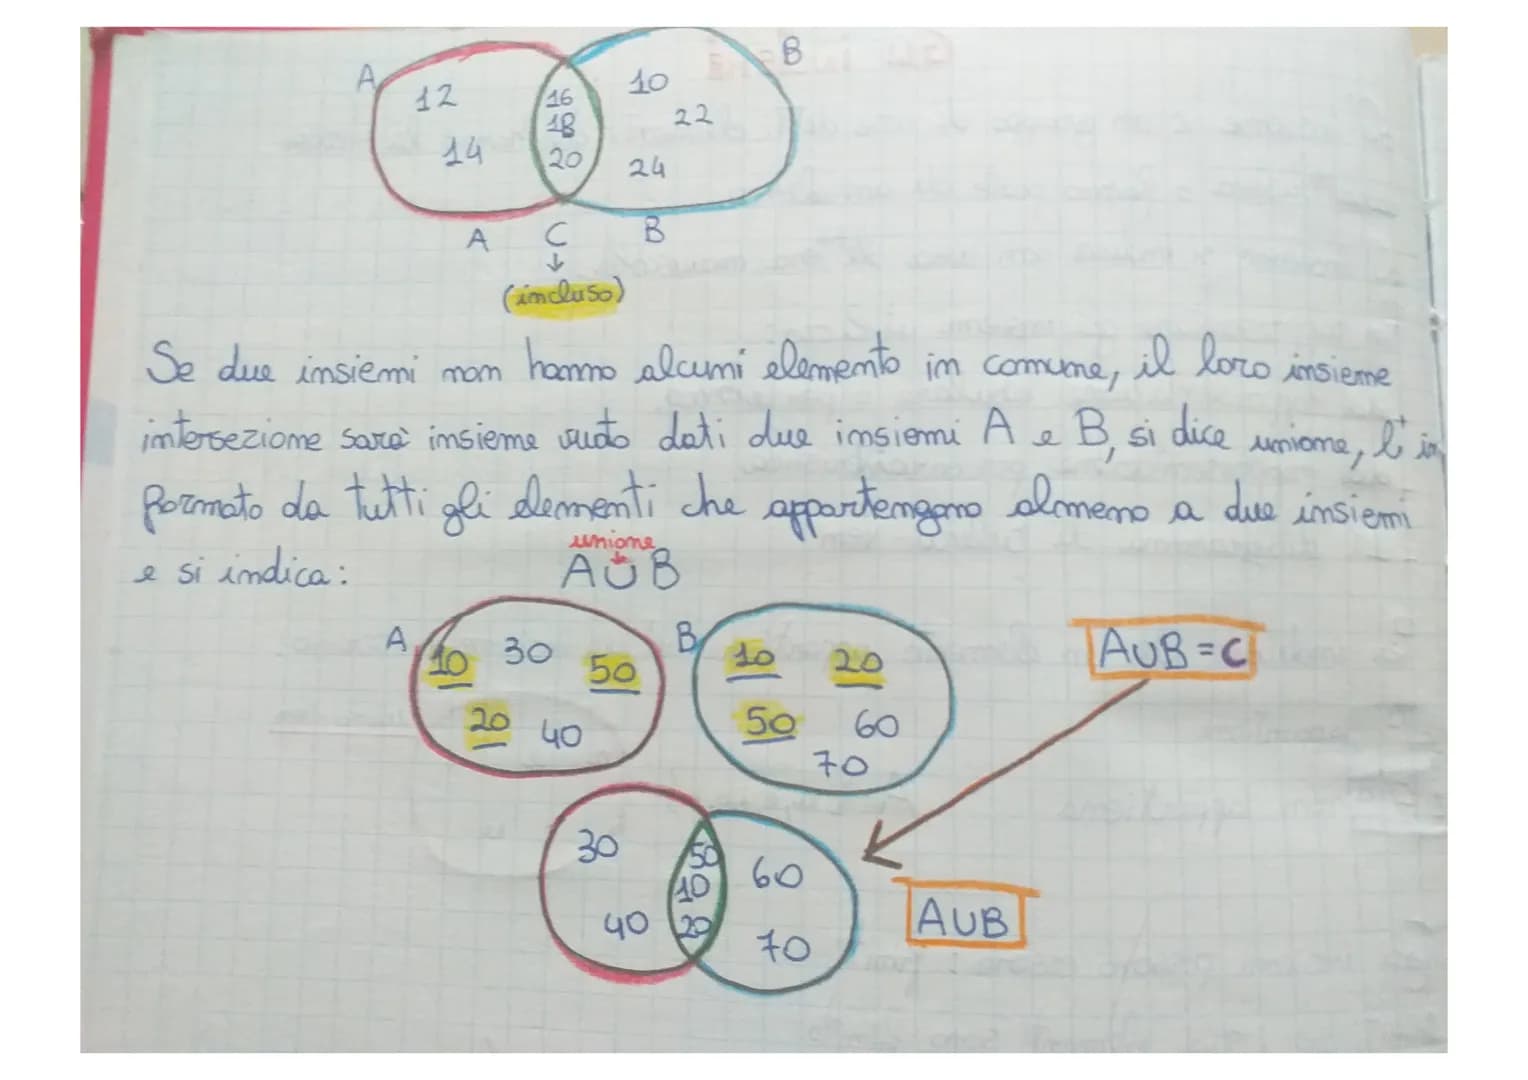 A
B
12
16
10
18
22
14
20
24
A C B
↓
(incluso)
Se due insiemi non hanno alcuni elemento in comune, il loro insieme
intersezione sarà insieme vuoto dati due insiemi A e B, si dice unione, l'
formato da tutti gli elementi che appartengono almeno a due insiemi
unione
e si indica: A∪B
A B
10 30 50
20 40
10 20
50 60
70
A∪B = C
30 50 60
10
40 20 70
A∪B